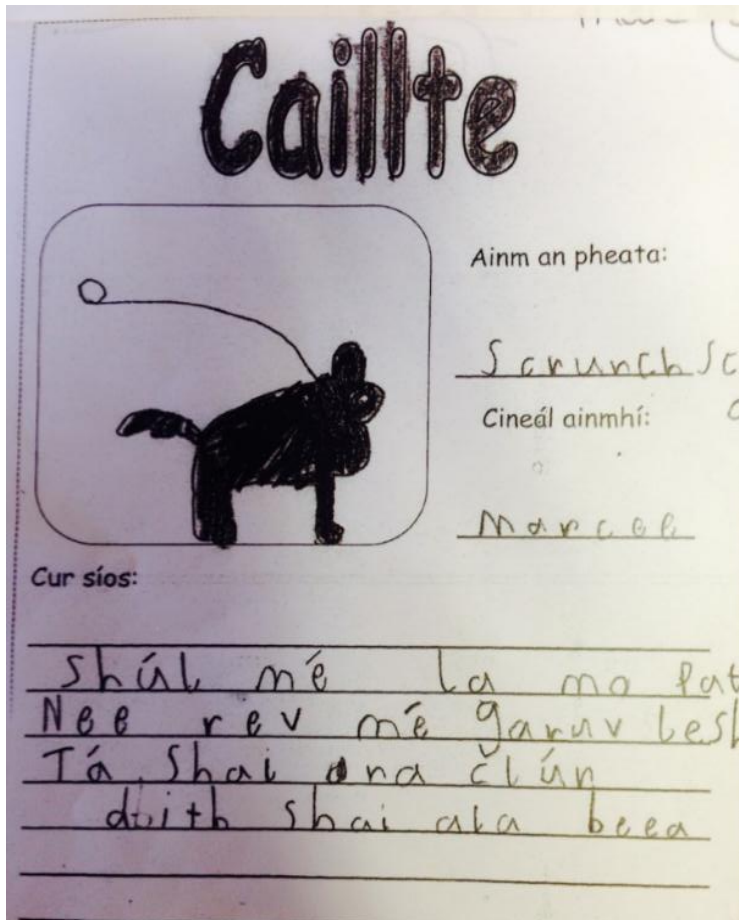 Caillte
Ainm an pheata:
Scrunch
Cineál ainmhí:
Marcee
Cur síos:
Shúl mé la mo pat
Nee rev mé garuv lesh
Tá Shai ana člún
duith shai ala beea